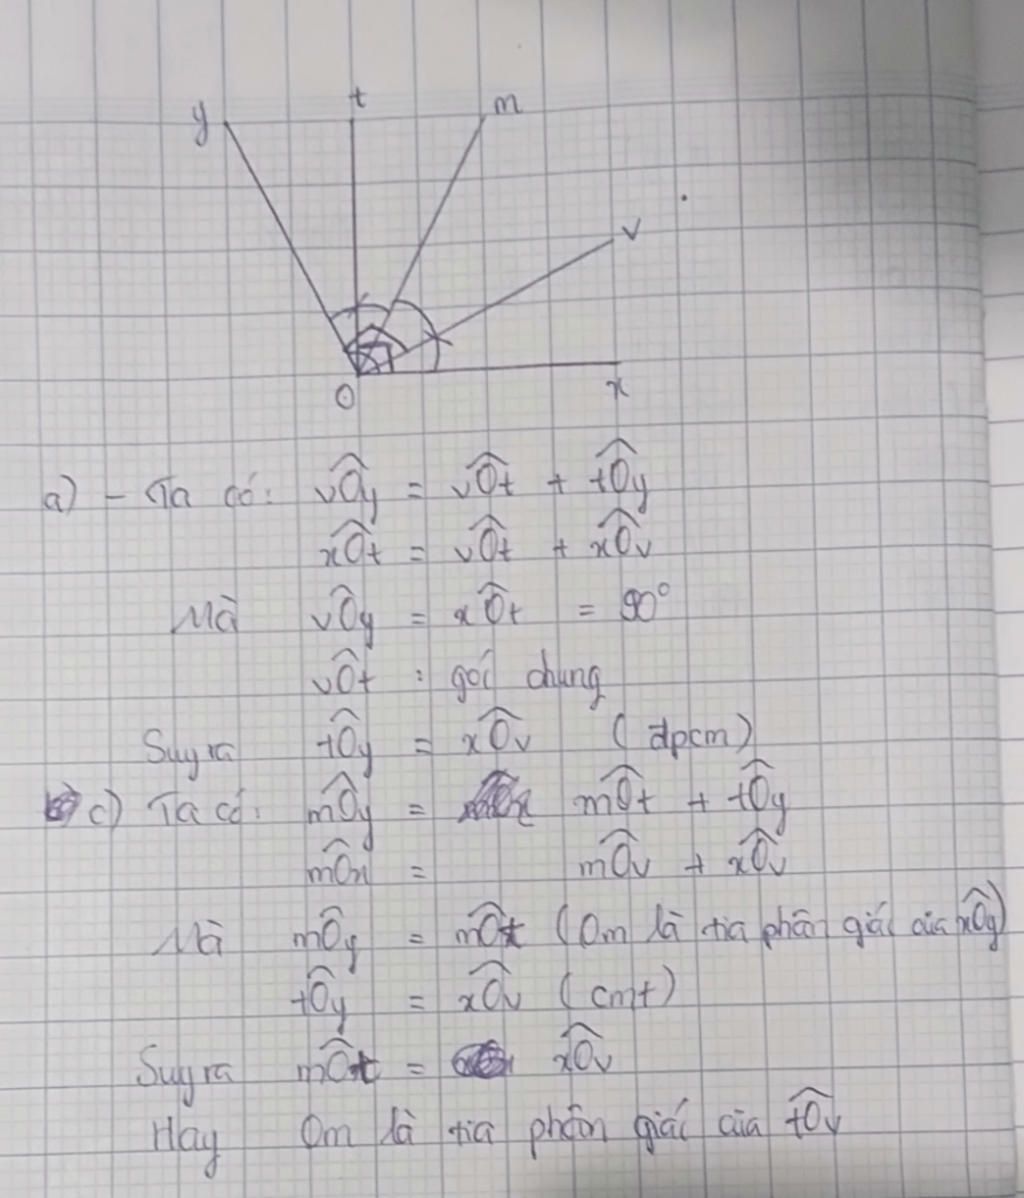 y t m
v
O x
a) - Ta có: vÔy = vÔt + tÔy
xÔt = vÔt + xÔv
Mà vÔy = xÔt = 90°
vÔt : goí chung
Suy ra tÔy = xÔv (đpcm)
c) Ta có: mÔy = mÔt + tÔy
mÔx = mÔv + xÔv
Mà mÔy = mÔx (Om là tia phân giác của xÔy)
tÔy = xÔv (cmt)
Suy ra mÔt = xÔv
Hay Om là tia phân giác của tÔv